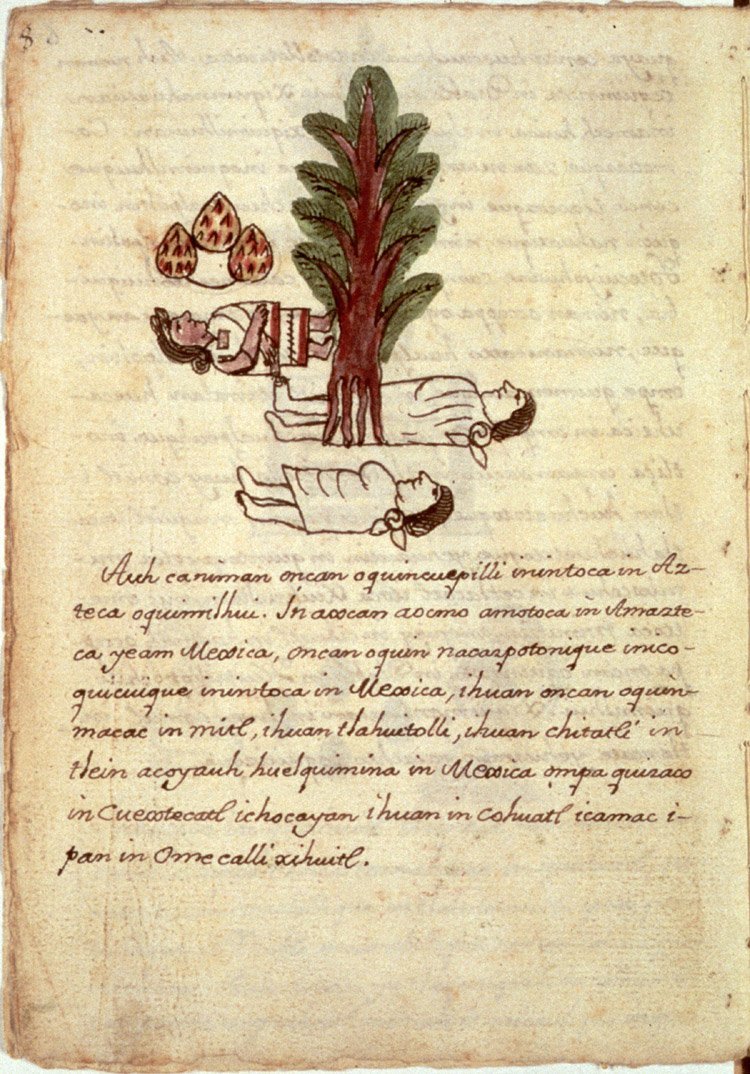 8
Auh ca niman oncan oquincuepilli inintoca in Az-
teca oquimilhui. In axcan aocmo amotoca in Amazte-
ca yeam Mexica, oncan oquin nacazpotonique inic o-
quicuique inintoca in Mexica, ihuan oncan oquin-
macac in mitl, ihuan tlahuitolli, ihuan chitatli in
tlein acoyauh huelquimina in Mexica ompa quizaco
in Cuextecatl ichocayan ihuan in Cohuatl icamac i-
pan in Ome calli xihuitl.